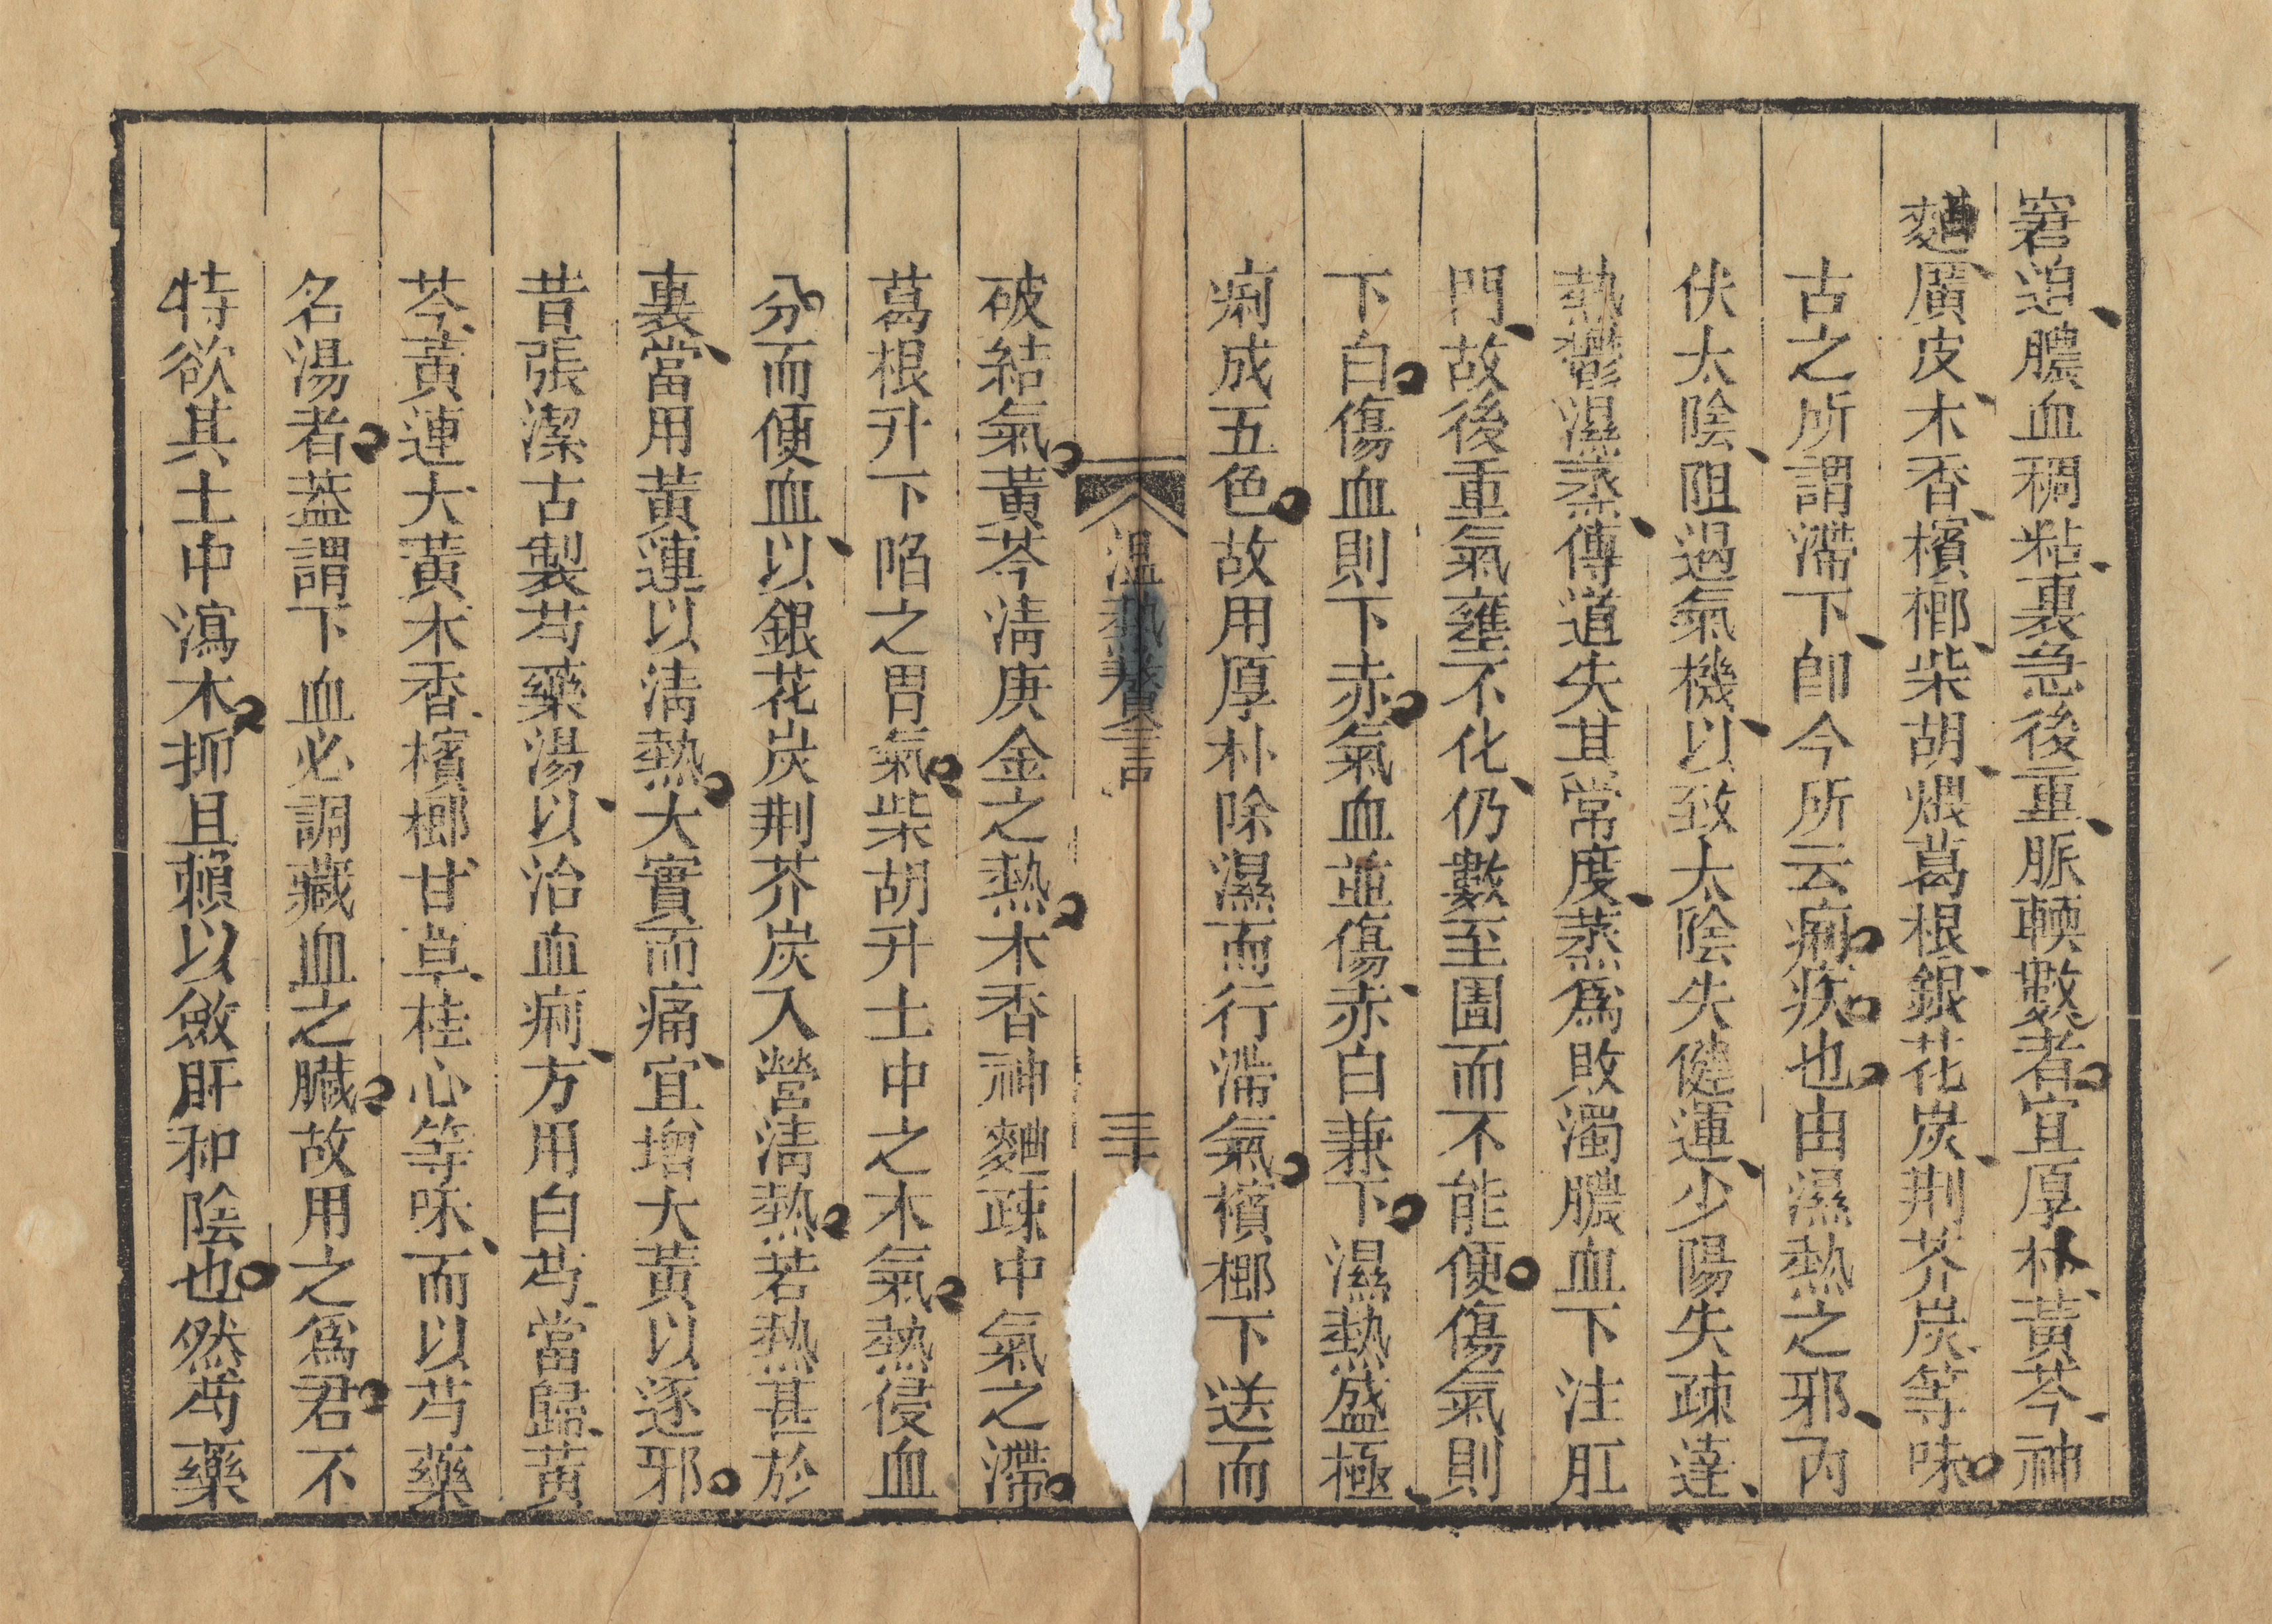 窘迫膿血稠粘裏急後重脈輭數者宜厚朴黃芩神
麯廣皮木香檳榔柴胡煨葛根銀花炭荆芥炭等味
古之所謂滯下卽今所云痢疾也由濕熱之邪內
伏太陰阻遏氣機以致太陰失健運少陽失疎達
熱鬱濕蒸傳道失其常度蒸爲敗濁膿血下注肛
門故後重氣壅不化仍數至圊而不能便傷氣則
下白傷血則下赤氣血並傷赤白兼下濕熱盛極
痢成五色故用厚朴除濕而行滯氣檳榔下送而
溫熱贅言
三十
破結氣黃芩淸庚金之熱木香神麯疎中氣之滯
葛根升下陷之胃氣柴胡升土中之木氣熱侵血
分而便血以銀花炭荆芥炭入營淸熱若熱甚於
裏當用黃連以淸熱大實而痛宜增大黃以逐邪
昔張潔古製芍藥湯以治血痢方用白芍當歸黃
芩黃連大黃木香檳榔甘草桂心等味而以芍藥
名湯者葢謂下血必調藏血之臟故用之爲君不
特欲其土中瀉木抑且賴以斂肝和陰也然芍藥